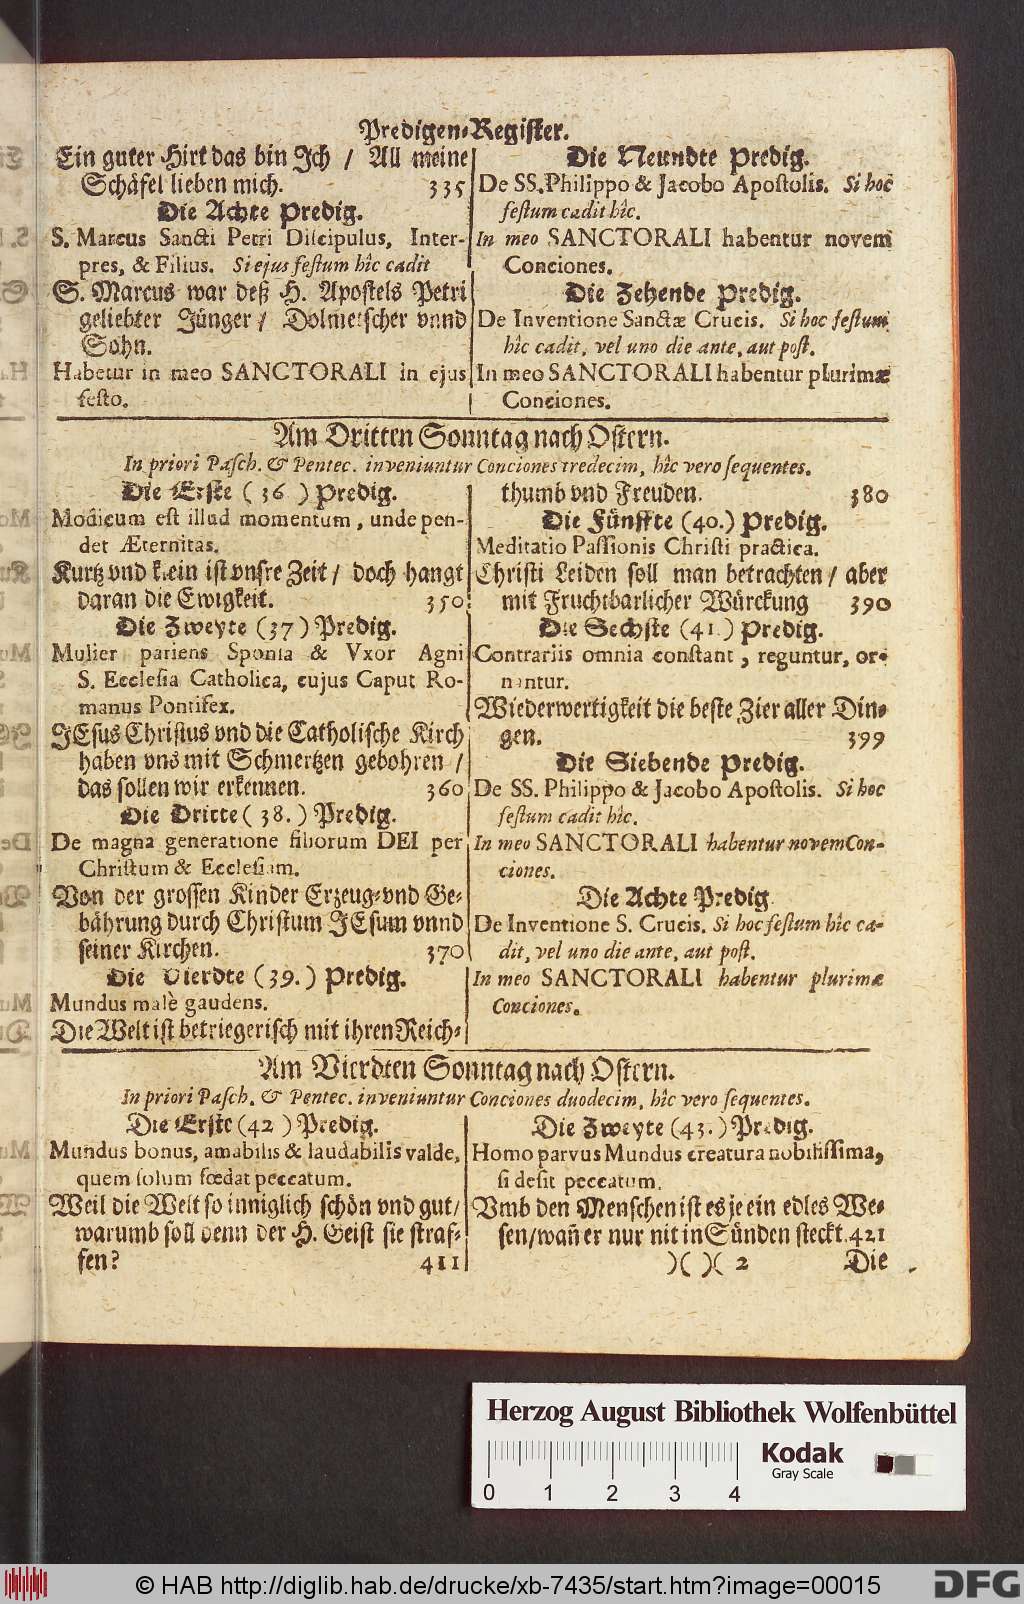 Predigen-Register.
Ein guter Hirt das bin Jch / All meine
Schäfel lieben mich. 335
Die Achte Predig.
S. Marcus Sancti Petri Discipulus, Inter-
pres, & Filius. Si ejus festum hîc cadit
S. Marcus war deß H. Apostels Petri
geliebter Jünger / Dolmetscher vnnd
Sohn.
Habetur in meo SANCTORALI in ejus
festo.
Die Neundte Predig.
De SS. Philippo & Jacobo Apostolis. Si hoc
festum cadit hîc.
In meo SANCTORALI habentur novem
Conciones.
Die Zehende Predig.
De Inventione Sanctæ Crucis. Si hoc festum
hîc cadit, vel uno die ante, aut post.
In meo SANCTORALI habentur plurimæ
Conciones.
Am Dritten Sonntag nach Ostern.
In priori Pasch. & Pentec. inveniuntur Conciones tredecim, hîc vero sequentes.
Die Erste (36) Predig.
Modicum est illud momentum, unde pen-
det Æternitas.
Kurtz vnd klein ist vnsre Zeit / doch hangt
daran die Ewigkeit. 350
Die Zweyte (37) Predig.
Mulier pariens Sponsa & Vxor Agni
S. Ecclesia Catholica, cujus Caput Ro-
manus Pontifex.
JEsus Christus vnd die Catholische Kirch
haben vns mit Schmertzen gebohren /
das sollen wir erkennen. 360
Die Dritte (38.) Predig.
De magna generatione filiorum DEI per
Christum & Ecclesiam.
Von der grossen Kinder Erzeug- vnd Ge-
bährung durch Christum JEsum vnnd
seiner Kirchen. 370
Die Vierdte (39.) Predig.
Mundus malè gaudens.
Die Welt ist betriegerisch mit ihren Reich-
thumb vnd Freuden. 380
Die Fünffte (40.) Predig.
Meditatio Passionis Christi practica.
Christi Leiden soll man betrachten / aber
mit Fruchtbarlicher Würckung 390
Die Sechste (41.) Predig.
Contrariis omnia constant, reguntur, or-
nantur.
Wiederwertigkeit die beste Zier aller Din-
gen. 399
Die Siebende Predig.
De SS. Philippo & Jacobo Apostolis. Si hoc
festum cadit hîc.
In meo SANCTORALI habentur novem Con-
ciones.
Die Achte Predig
De Inventione S. Crucis. Si hoc festum hîc ca-
dit, vel uno die ante, aut post.
In meo SANCTORALI habentur plurimæ
Conciones.
Am Vierdten Sonntag nach Ostern.
In priori Pasch. & Pentec. inveniuntur Conciones duodecim, hîc vero sequentes.
Die Erste (42) Predig.
Mundus bonus, amabilis & laudabilis valde,
quem solum fœdat peccatum.
Weil die Welt so inniglich schön vnd gut /
warumb soll denn der H. Geist sie straf-
fen? 411
Die Zweyte (43.) Predig.
Homo parvus Mundus creatura nobilissima,
si desit peccatum.
Vmb den Menschen ist es je ein edles We-
sen / wañ er nur nit in Sünden steckt. 421
)( )( 2 Die
Herzog August Bibliothek Wolfenbüttel
Kodak
Gray Scale
0 1 2 3 4
© HAB http://diglib.hab.de/drucke/xb-7435/start.htm?image=00015
DFG